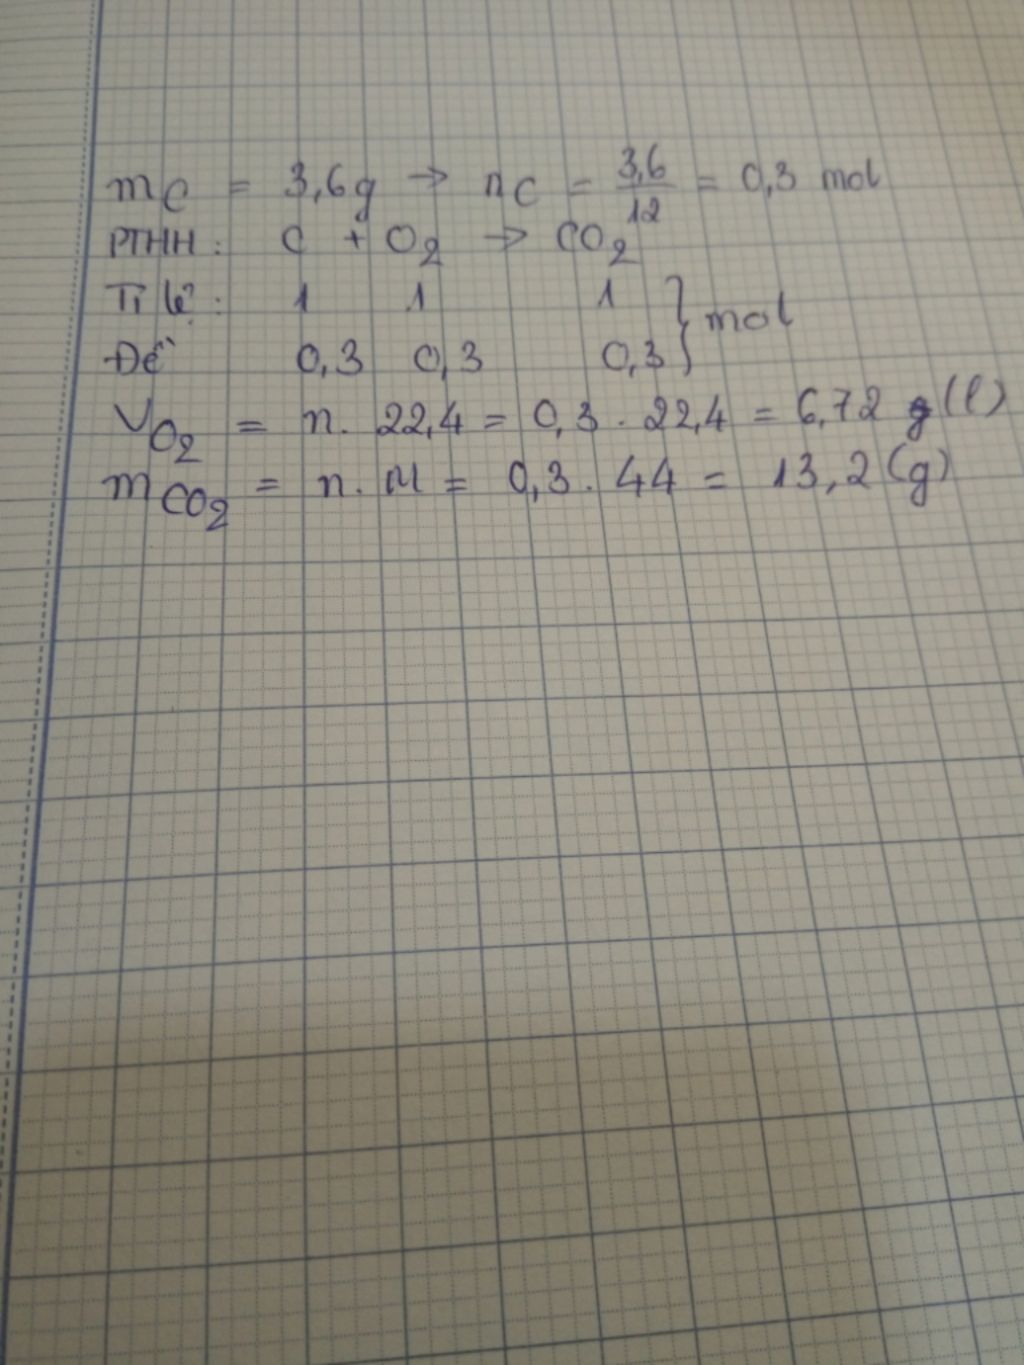 mC = 3,6g → nC = 3,6/12 = 0,3 mol
PTHH: C + O2 → CO2
Tỉ lệ: 1 1 1 } mol
Đề 0,3 0,3 0,3
VO2 = n. 22,4 = 0,3 . 22,4 = 6,72 (l)
mCO2 = n. M = 0,3. 44 = 13,2 (g)